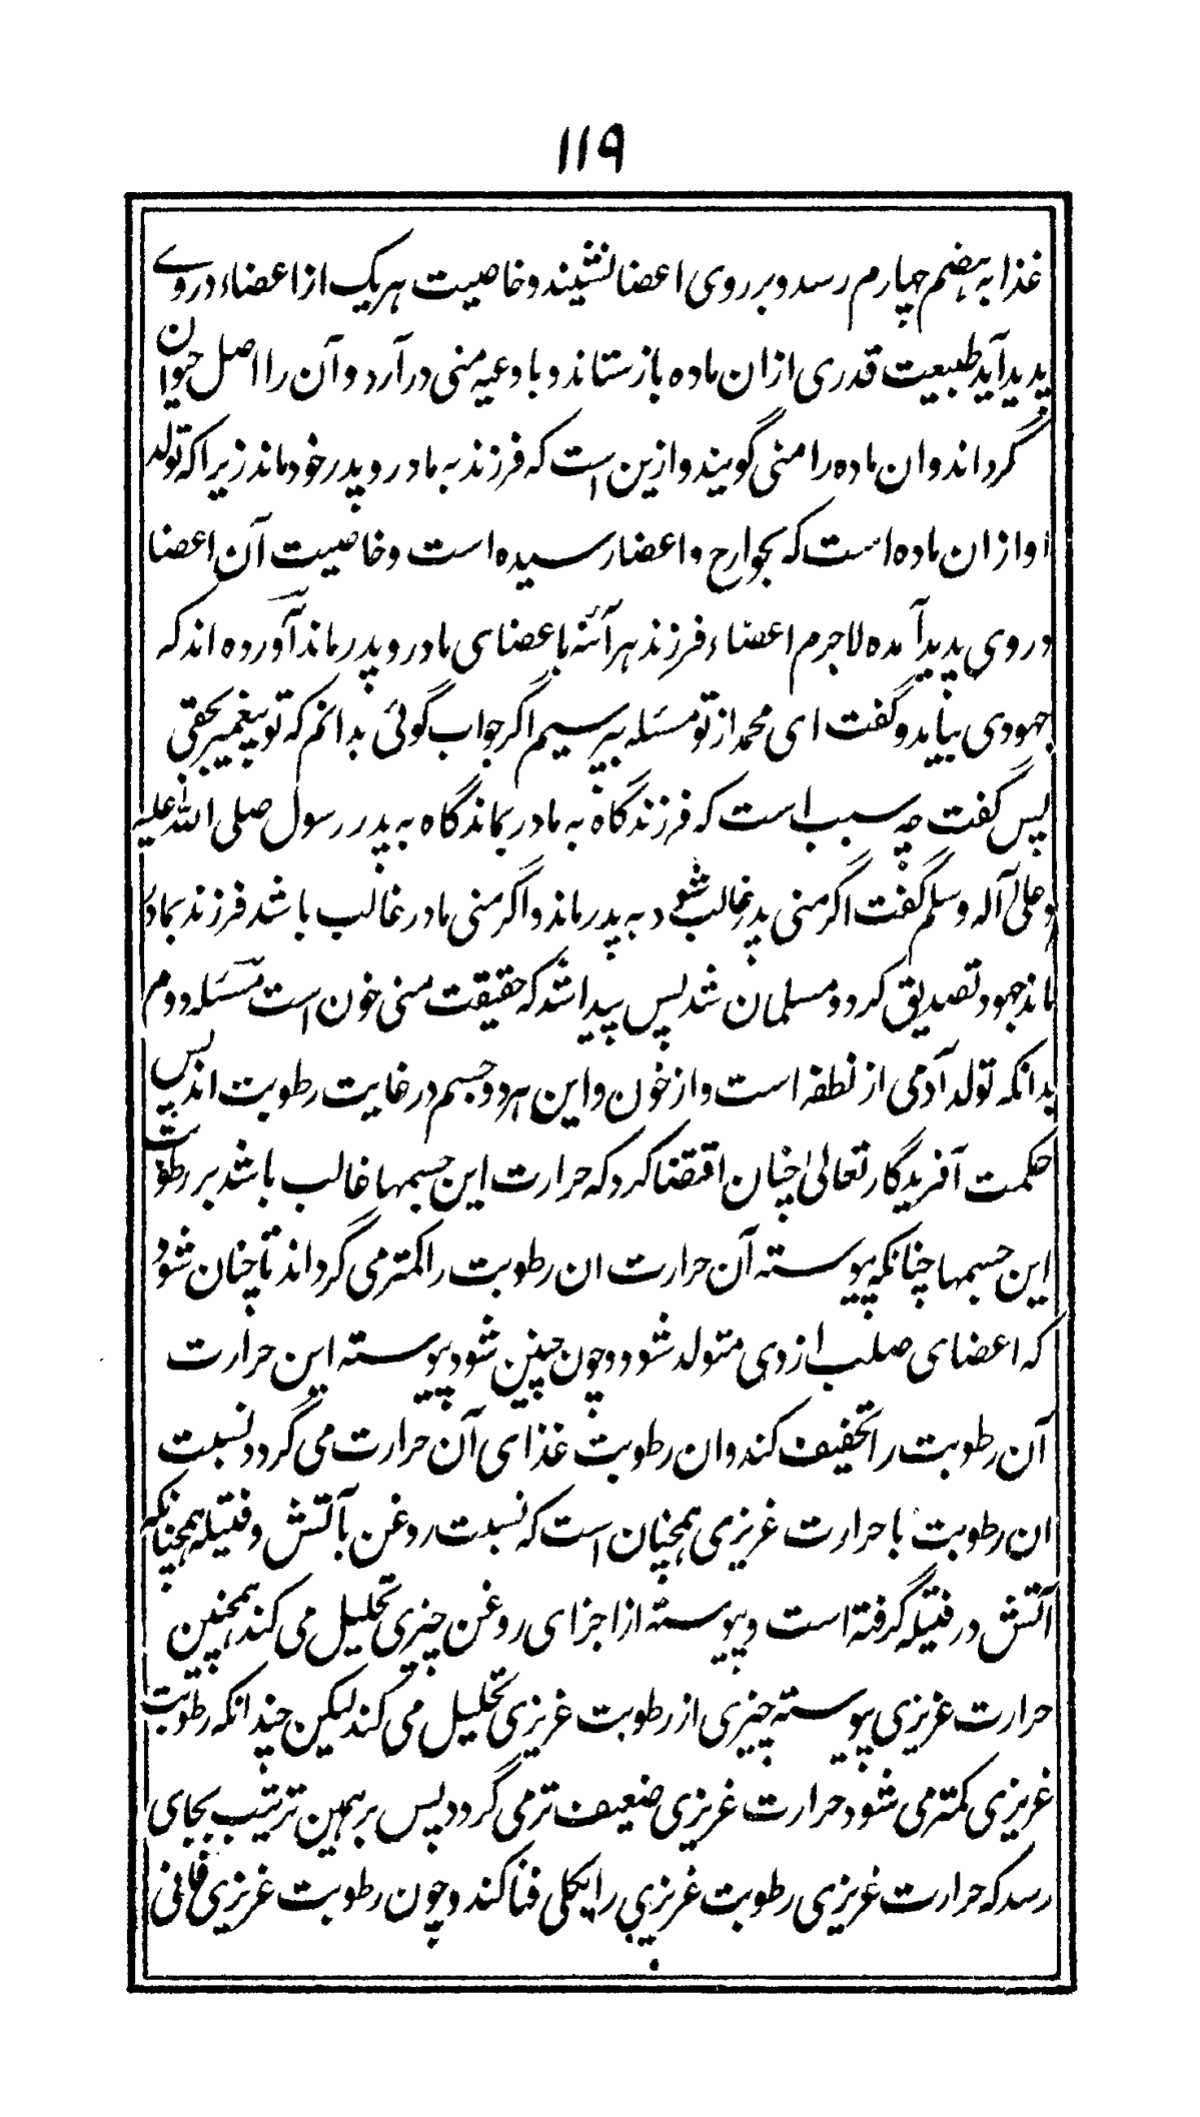 ۱۱۹
غذا به هضم چهارم رسد و بر روی اعضا نشیند و خاصیت هر یک از اعضاء در وے
پدید آید طبیعت قدری ازان ماده بازستاند و باوعیه منی در آرد و آن را اصل حیوان
گرداند و ان ماده را منی گویند و ازین است که فرزند به مادر و پدر خود ماند زیرا که تولد
او ازان ماده است که بجوارح و اعضا رسیده است و خاصیت آن اعضا
در وی پدید آمده لاجرم اعضاء فرزند هر آئنه باعضای مادر و پدر ماند آورده اند که
جهودی بیاید و گفت ای محمد از تو مسئله بپرسیم اگر جواب گوئی بدانم که تو پیغمبر بحقی
پس گفت چه سبب است که فرزند گاه به مادر بماند گاه به پدر رسول صلی الله علیه
و علی آله وسلم گفت اگر منی پدر غالب شود به پدر ماند و اگر منی مادر غالب باشد فرزند بمادر
ماند جهود تصدیق کرد و مسلمان شد پس پیدا شد که حقیقت منی خون است مسئله دوم
بدانکه تولد آدمی از نطفه است و از خون و این هر دو جسم در غایت رطوبت اند پس
حکمت آفریدگار تعالیٰ چنان اقتضا کرد که حرارت این جسمها غالب باشد بر رطوبت
این جسمها چنانکه پیوسته آن حرارت ان رطوبت را کمتر می گرداند تا چنان شود
که اعضای صلب از وی متولد شود و چون چنین شود پیوسته این حرارت
آن رطوبت را تخفیف کند و ان رطوبت غذای آن حرارت می گردد و نسبت
ان رطوبت با حرارت غریزی همچنان است که نسبت روغن بآتش و فتیله همچنانکه
آتش در فتیله گرفته است و پیوسته از اجزای روغن چیزی تحلیل می کند همچنین
حرارت غریزی پیوسته چیزی از رطوبت غریزی تحلیل می کند لیکن چندانکه رطوبت
غریزی کمتر می شود حرارت غریزی ضعیف تر می گردد پس بر همین ترتیب بجای
رسد که حرارت غریزی رطوبت غریزی را بکلی فنا کند و چون رطوبت غریزی فانی